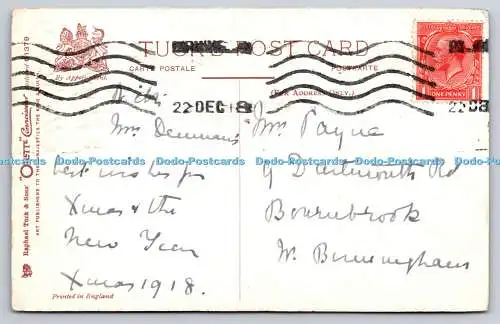 TUCK'S POST CARD
CARTE POSTALE
POSTKARTE
By Appointment
(FOR ADDRESS ONLY.)
ONE PENNY
22 DEC 18
With
Mrs Denman's
best wishes for
Xmas & the
New Year
Xmas 1918.
Mrs Payne
9 Dartmouth Rd
Bournbrook
Nr. Birmingham
Printed in England
Raphael Tuck & Sons' "OILETTE"
ART PUBLISHERS TO THEIR MAJESTIES THE KING &
Dodo-Postcards Dodo-Postcards Dodo-Postcards Dodo-Postcards Dodo-Postcards